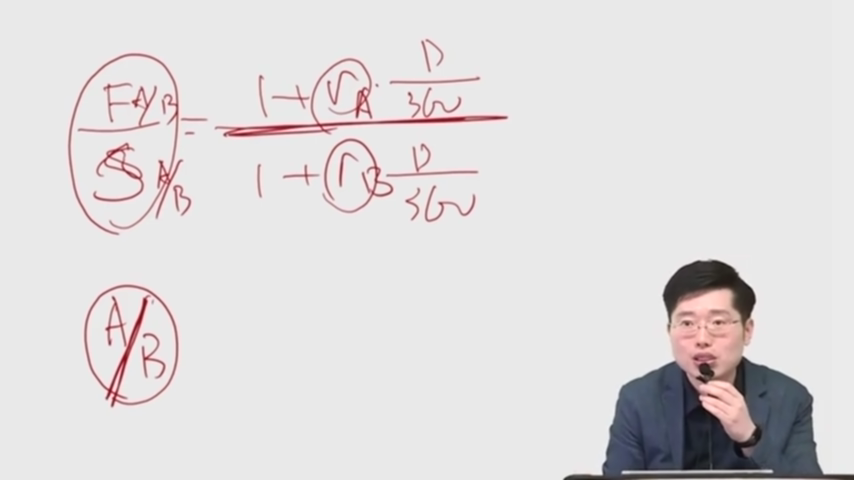 F A/B / S A/B = (1 + r_A · D/360) / (1 + r_B D/360)
A/B